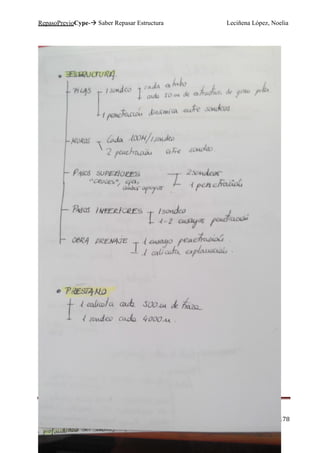 RepasoPrevioCype-→ Saber Repasar Estructura Leciñena López, Noelia
• ESTRUCTURA.
- PILAS - 1 sondeo cada estribo
cada 50 m de estructura de gran
1 penetración dinámica entre sondeos
- MUROS - Cada 100M/1 sondeo
2 penetración entre sondeo
- PASOS SUPERIORES - 2 sondeos
"CRUCES", apoyos - 1 penetración
- PASOS INFERIORES - 1 sondeo
1-2 ensayos penetración
- OBRA DRENAJE - 1 ensayo penetración
1 calicata explanación.
• PRESTAMO
- 1 calicata cada 500 m de traza
1 sondeo cada 4000 m.
78